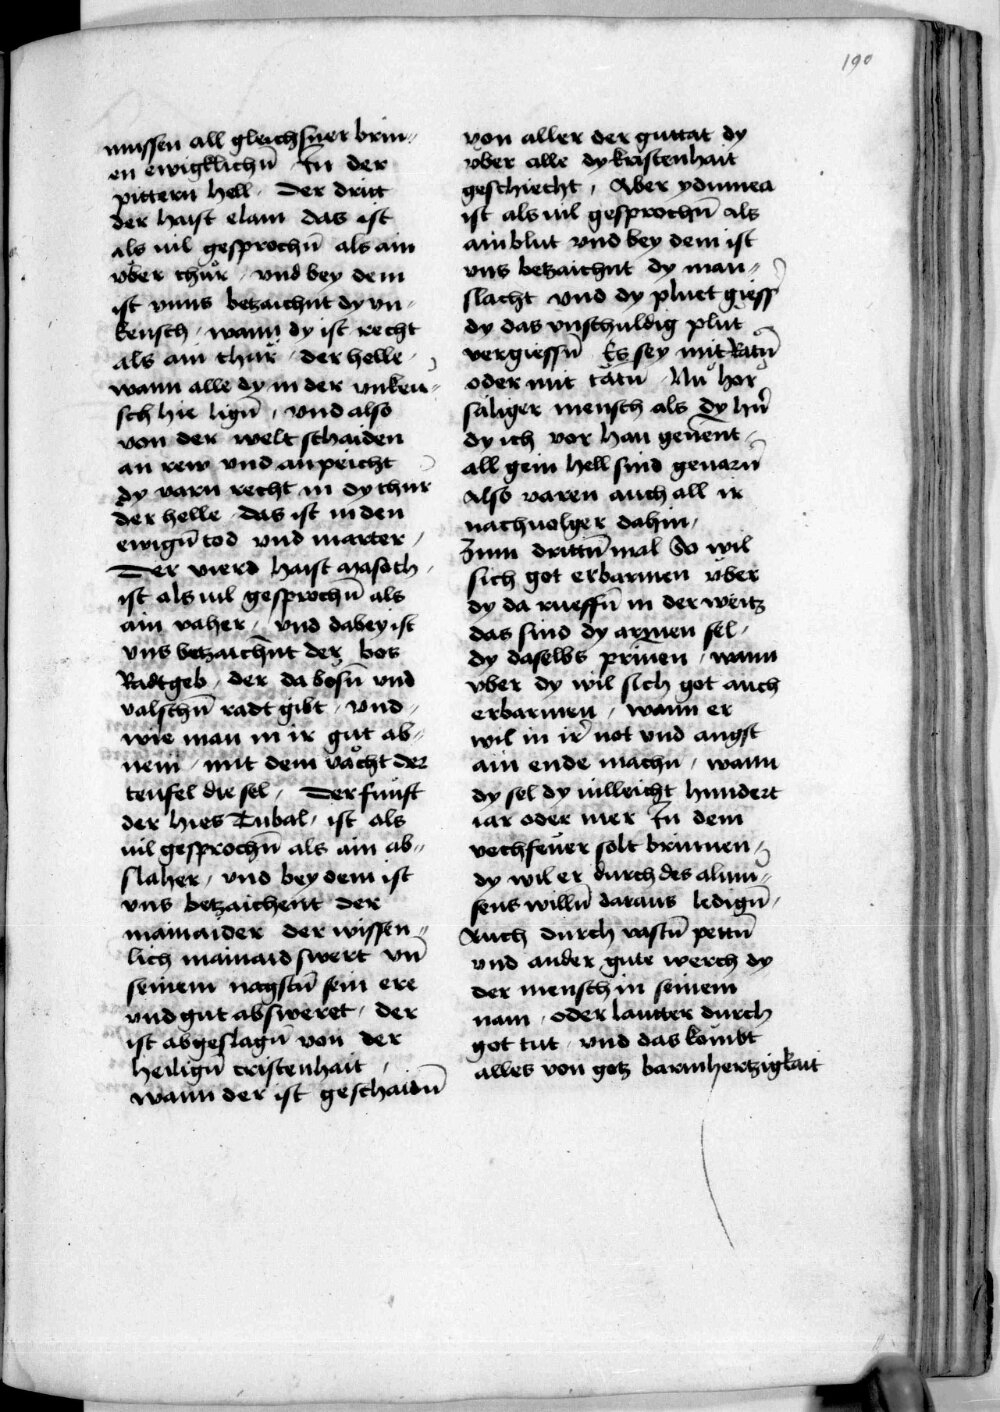 190
mussen all gleichsner brin„
en ewigklichn̄ In der
pittern hell · Der dritt
der haist elam das ist
als uil gesprochn̄ als ain
vber thůr / vnd bey dem
ist vnns betzaichnt dy vn„
keusch / wann dy ist recht
als ain thůr der helle /
wann alle dy in der vnkeu„
sch hie lign̄ / vnd also
von der welt schaiden
an rew vnd an peicht
dy varn recht in dy thur
der helle das ist in den
ewign̄ tod vnd marter /
Der vierd haist Masoch /
ist als uil gesprochn̄ als
ain vaher / vnd dabey ist
vns betzaichn̄t der bos
Radtgeb / der da bosn̄ vnd
valschn̄ radt gibt / vnd /
wie man in ir gut ab„
nem / mit dem vacht der
teufel die sel / Der funft
der hies Tubal / ist als
uil gesprochn̄ als ain ab„
slaher / vnd bey dem ist
vns betzaichent der
mainaider der wissen„
lich mainaid swert vn̄
seinem nagstn̄ sein ere
vnd gut absweret / der
ist abgeslagn̄ von der
heilign̄ cristenhait /
wann der ist geschaidn̄
von aller der guttat dy
vber alle dy kristenhait
geschiecht / Aber ydumea
ist als uil gesprochn̄ als
ain blut vnd bey dem ist
vns betzaichnt dy man„
slacht vnd dy pluet giess
dy das vnschuldig plut
vergiessn̄ Es sey mit Ratn̄
oder mit tatn̄ / Nu hor
saliger mensch als dy hn̄
dy ich vor han genent /
all gein hell sind geuarn̄
also varen auch all ir
nachuolger dahin /
Zum drittn̄ mal So wil
sich got erbarmen vber
dy da rueffn̄ in der weitz
das sind dy armen sel /
dy daselbs prinen / wann
vber dy wil sich got auch
erbarmen / wann er
wil in ir not vnd angst
ain ende machn̄ / wann
dy sel dy uilleicht hundert
iar oder mer In dem
vechfeuer solt brinnen /
dy wil er durch des almu„
sens willn̄ daraus ledign̄ /
Auch durch vastn̄ petn̄
vnd ander gute werch dy
der mensch in seinem
nam / oder lautter durch
got tut / vnd das kombt
alles von gotz barmhertzigkait